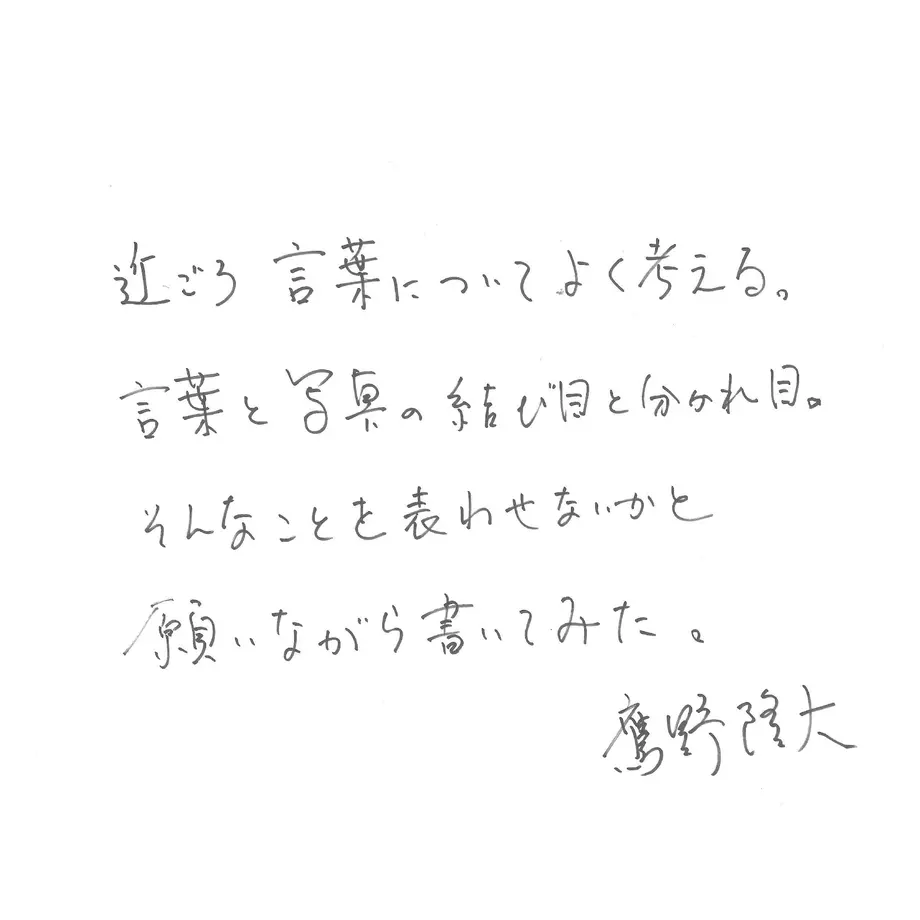 近ごろ 言葉についてよく考える。
言葉と写真の結び目と分かれ目。
そんなことを表わせないかと
願いながら書いてみた。
鷹野隆大